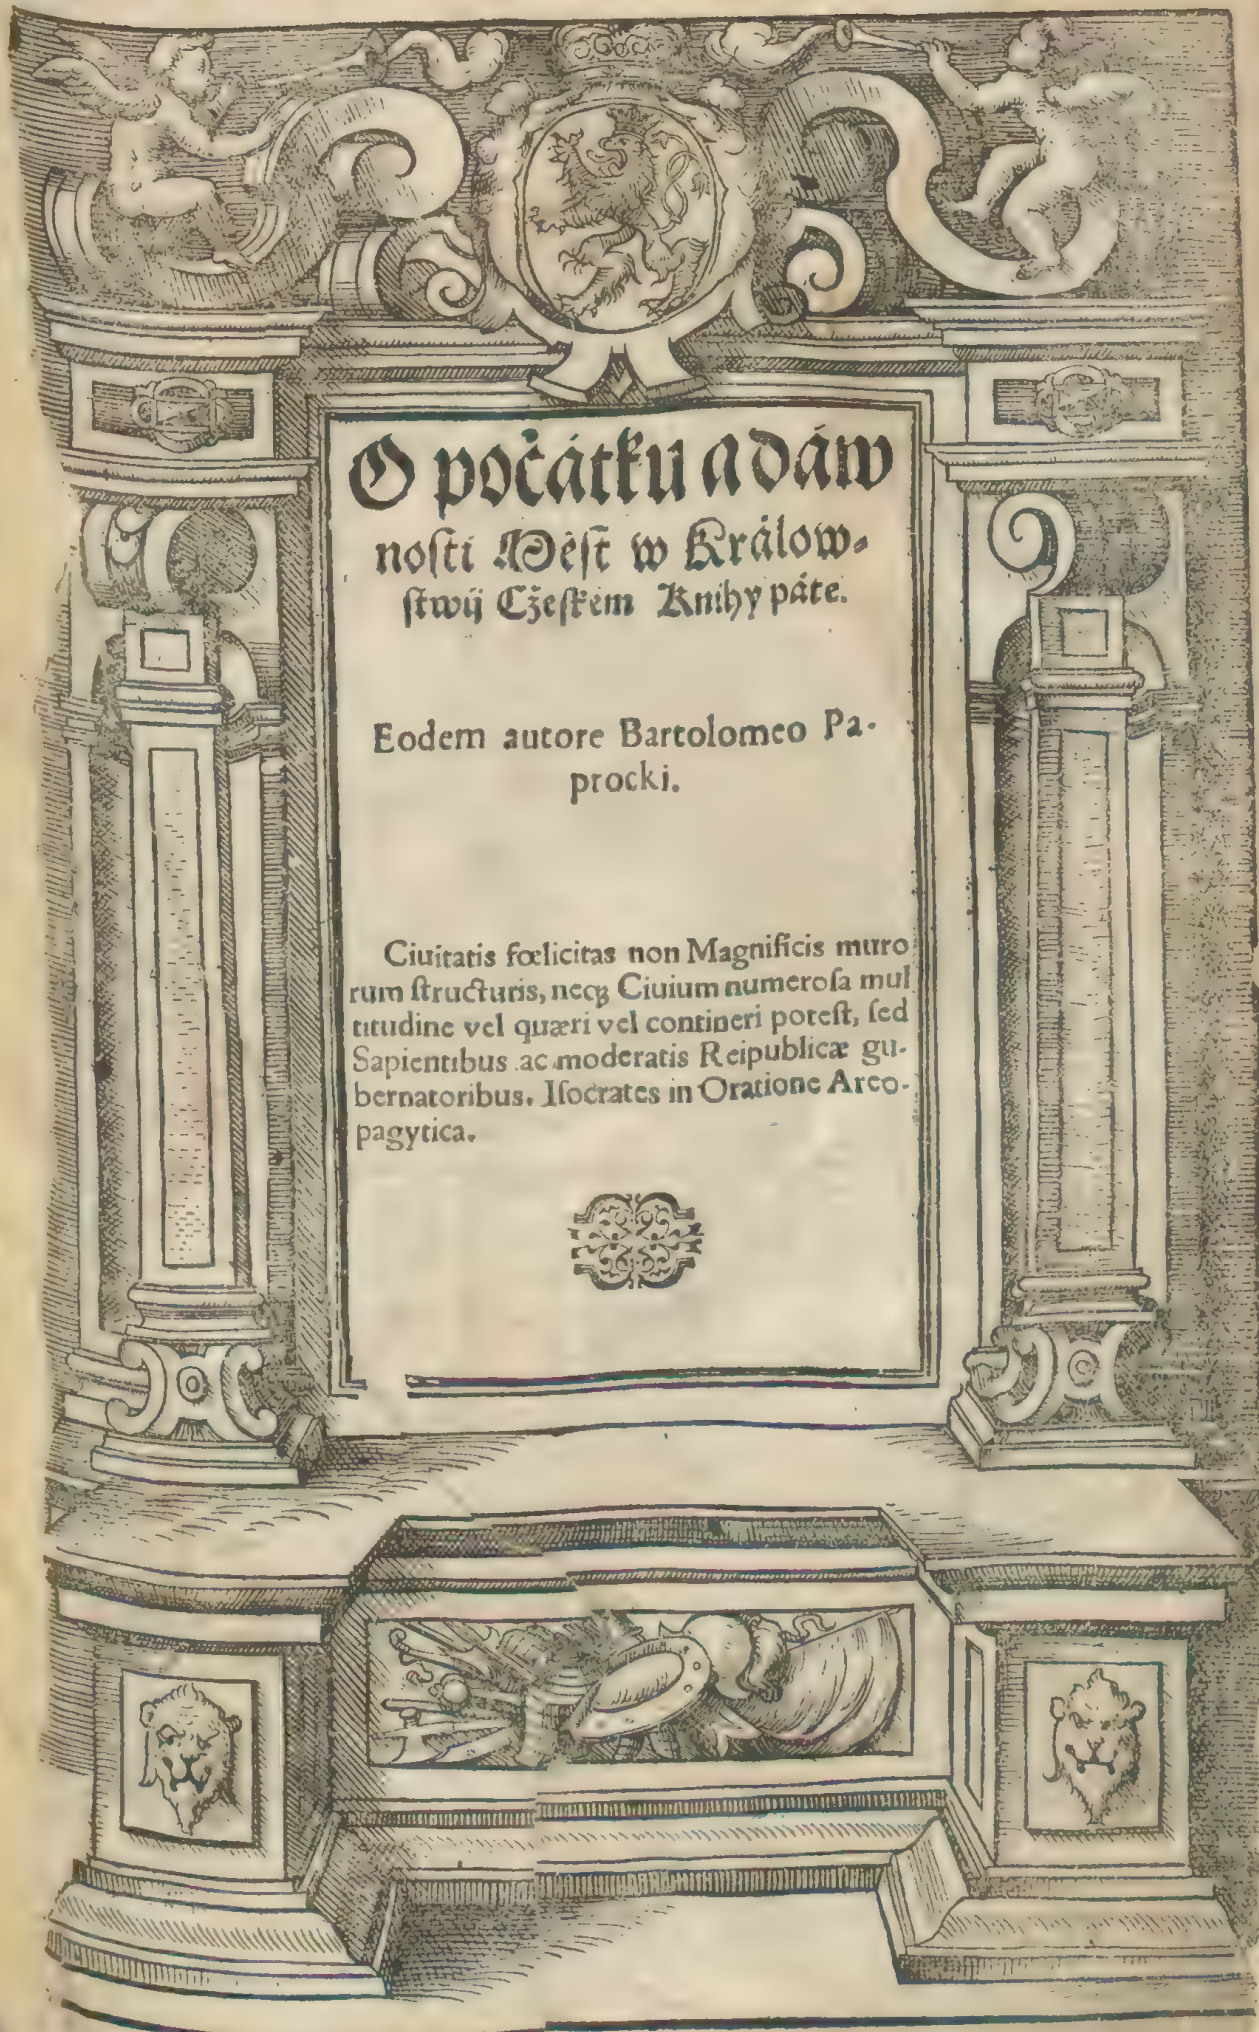 O počátku a dáw
noſti Měſt w Králow⸗
ſtwij Cžeſkém Knihy páté.
Eodem autore Bartolomeo Pa-
procki.
Ciuitatis fœlicitas non Magnificis muro
rum ſtructuris, neqꝫ Ciuium numeroſa mul
titudine vel quæri vel contineri poteſt, ſed
Sapientibus ac moderatis Reipublicæ gu-
bernatoribus. Iſocrates in Oratione Areo-
pagytica.